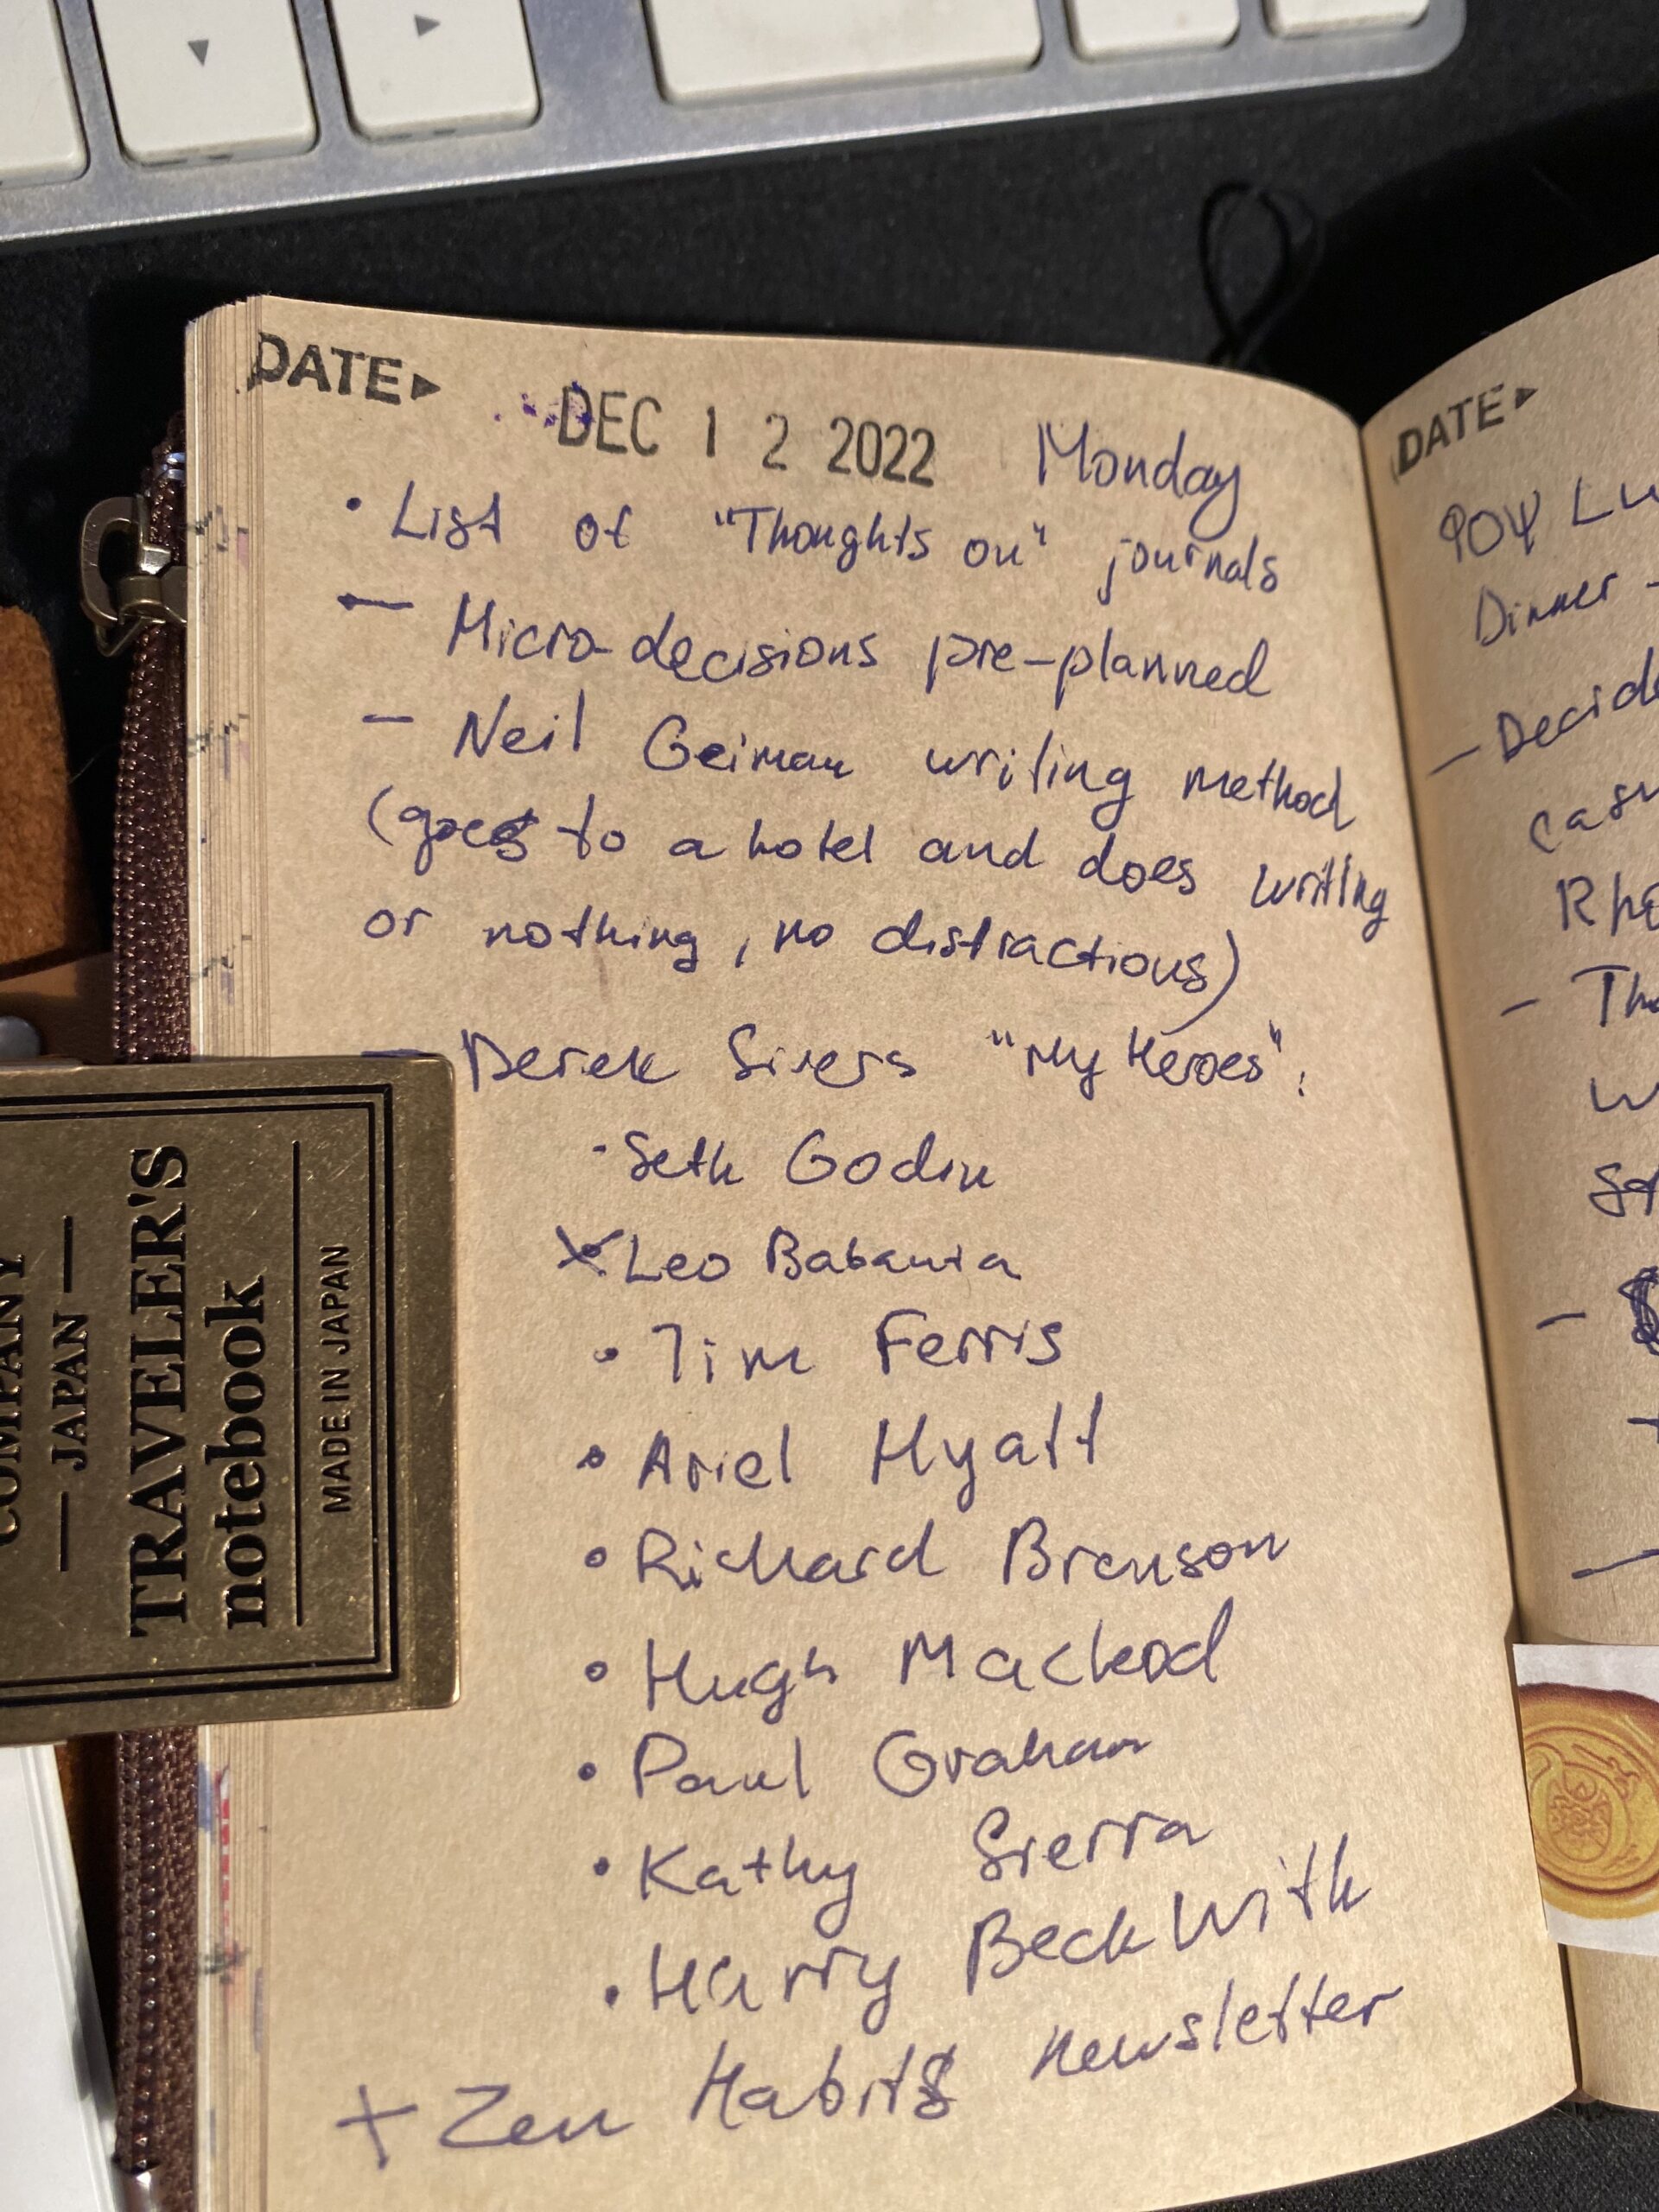 DATE▸
DEC 1 2 2022 Monday
• List of "Thoughts on" journals
— Micro-decisions pre-planned
— Neil Geiman writing method
(goes to a hotel and does writing
or nothing, no distractions)
— Derek Sivers "My Heroes":
· Seth Godin
× Leo Babauta
• Tim Ferris
• Ariel Hyatt
• Richard Brenson
• Hugh Macleod
• Paul Graham
• Kathy Sierra
• Harry Beckwith
+ Zen Habits newsletter
COMPANY
— JAPAN —
TRAVELER'S
notebook
MADE IN JAPAN
DATE▸
Dinner -
— Decide
—